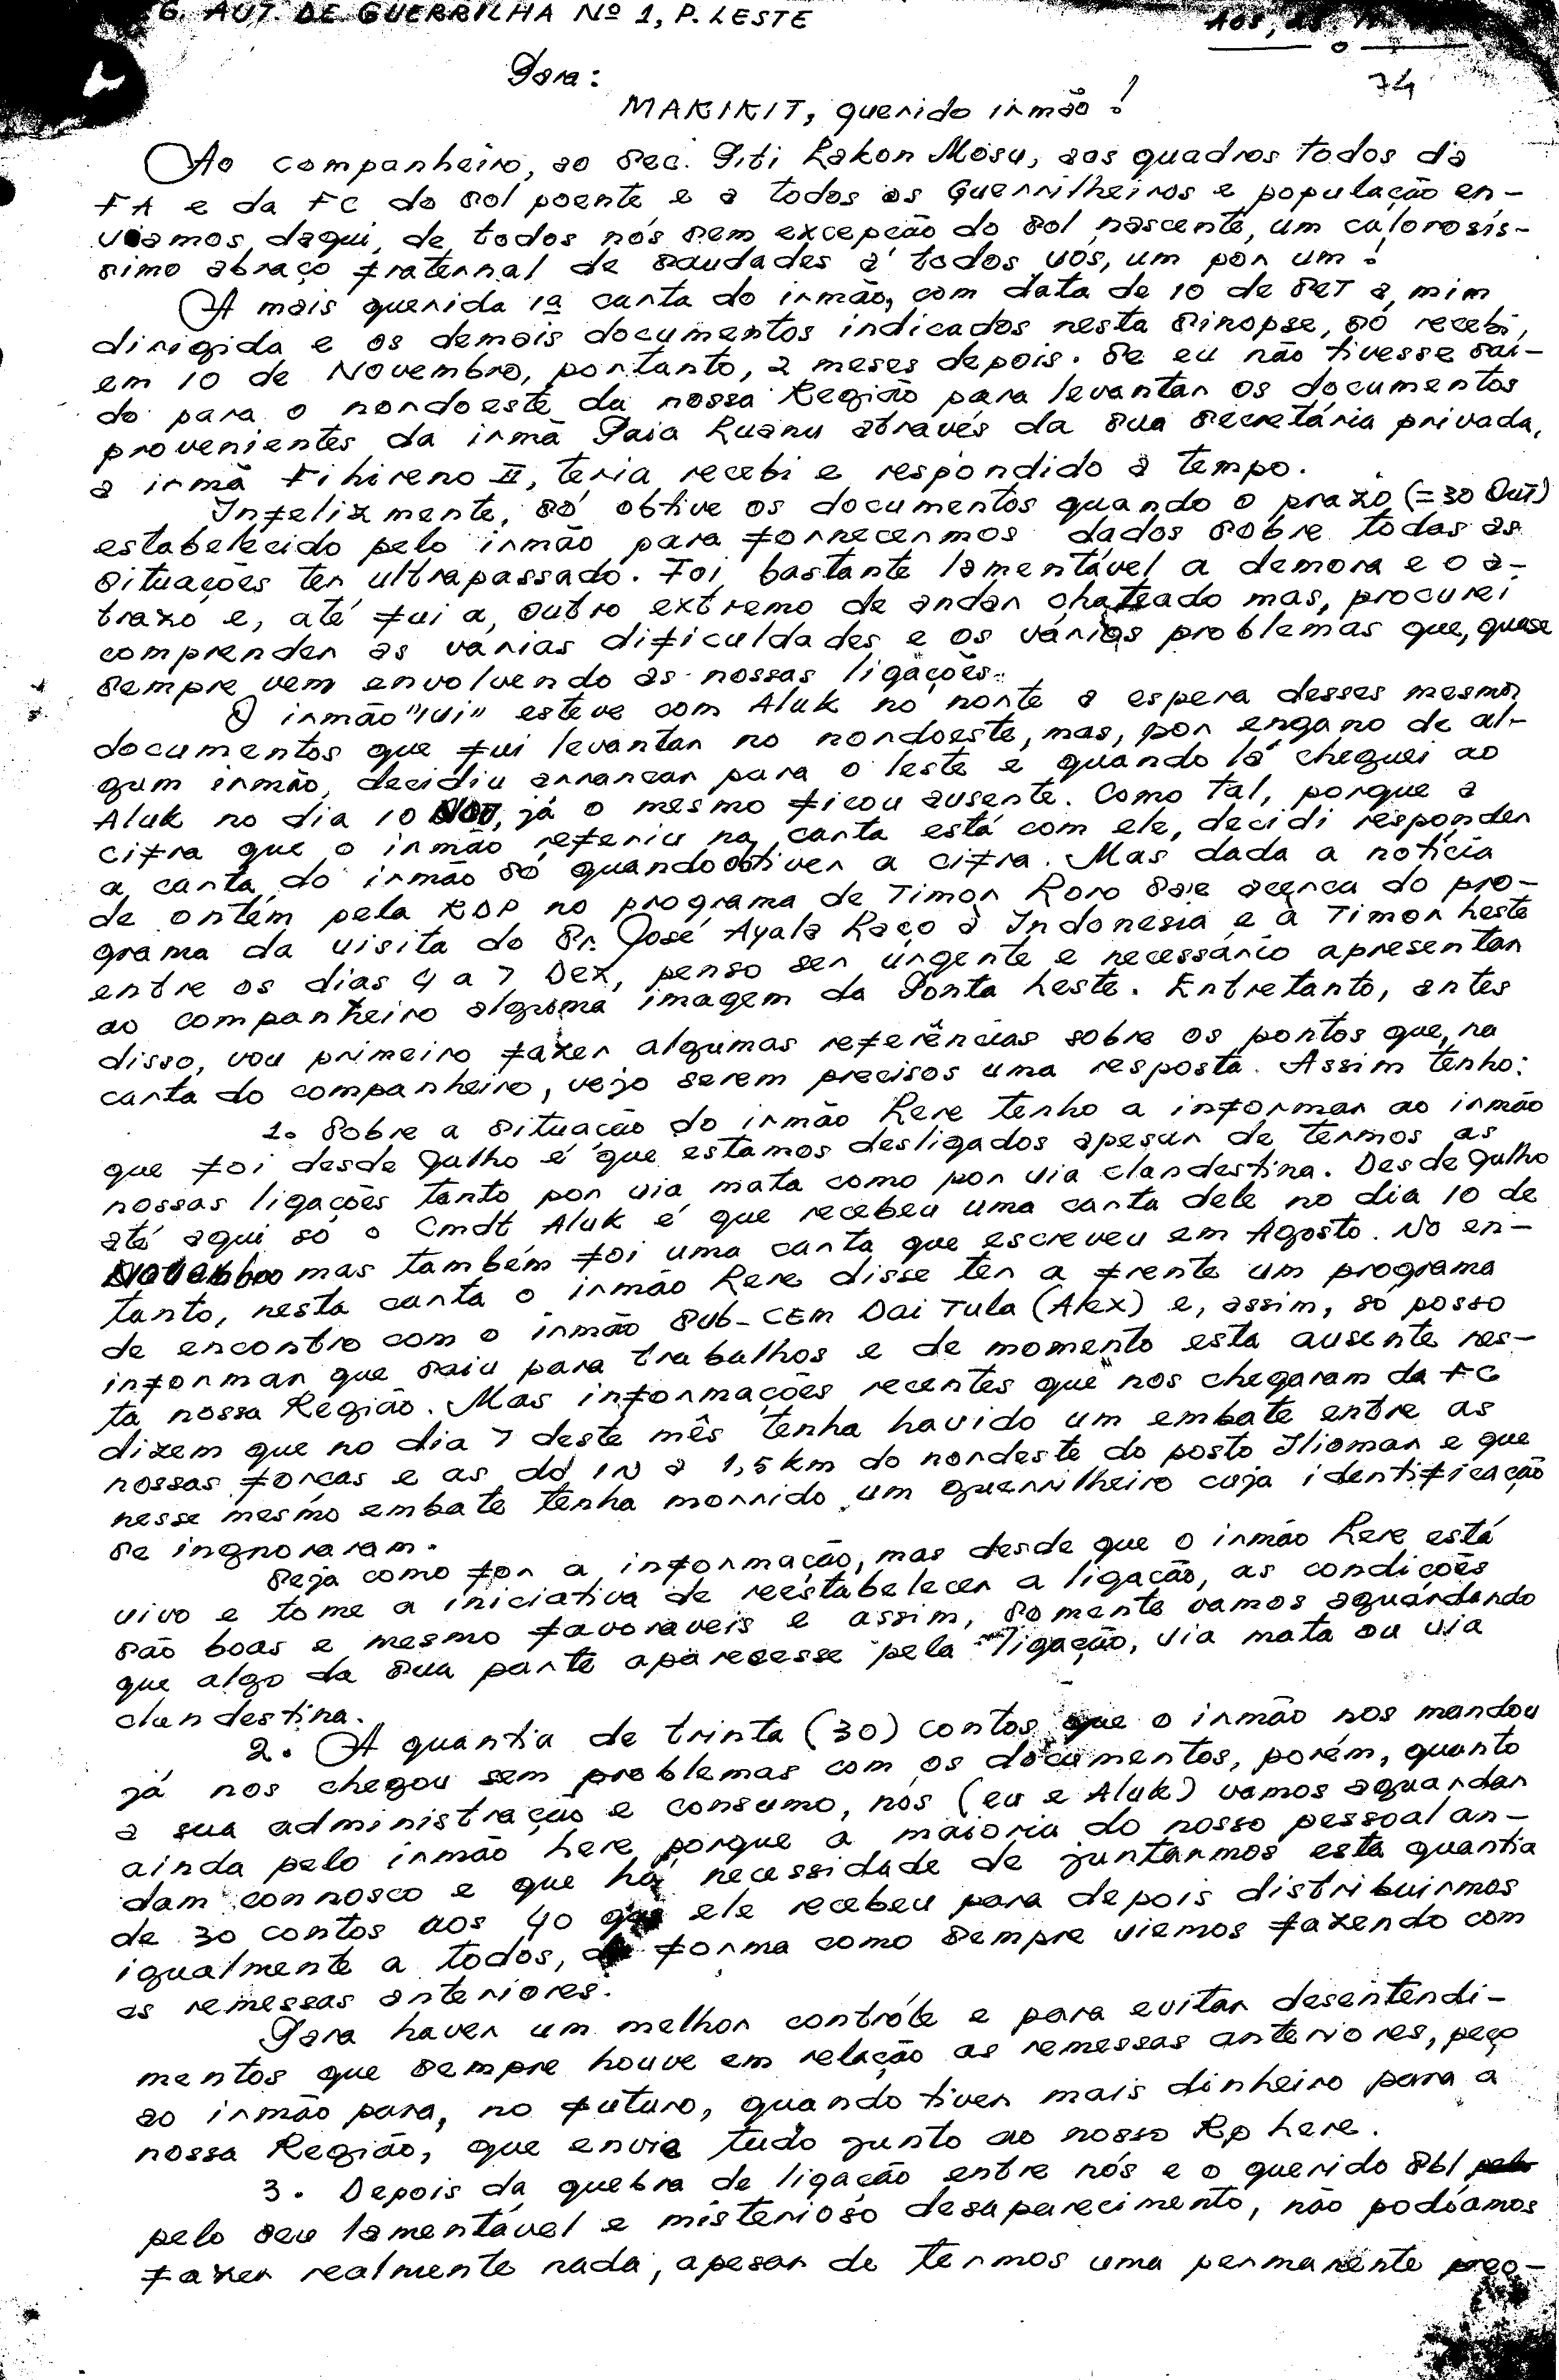 G. AUT. DE GUERRILHA Nº 1, P. LESTE
Aos,
74
Para:
MAKIKIT, querido irmão!
Ao companheiro, ao Sec. Piti Lakon Mosu, aos quadros todos da
FA e da FC do Sol poente e a todos os Guerrilheiros e população en-
viamos, daqui, de todos nós sem excepção do Sol nascente, um calorosís-
simo abraço fraternal de saudades a todos vós, um por um!
A mais querida 1ª carta do irmão, com data de 10 de SET a mim
dirigida e os demais documentos indicados nesta Sinopse, só recebi,
em 10 de Novembro, portanto, 2 meses depois. Se eu não tivesse saí-
do para o nordoeste da nossa Região para levantar os documentos
provenientes da irmã Paia Luanu através da sua Secretária privada,
a irmã Fihireno II, teria recebi e respondido a tempo.
Infelizmente, só obtive os documentos quando o prazo (=30 Out)
estabelecido pelo irmão para fornecermos dados sobre todas as
situações ter ultrapassado. Foi bastante lamentável a demora e o a-
trazo e, até fui a outro extremo de andar chateado mas, procurei
comprender as várias dificuldades e os vários problemas que, quase
sempre vem envolvendo as nossas ligações.
O irmão "Ui" esteve com Aluk no norte a espera desses mesmos
documentos que fui levantar no nordoeste, mas, por engano de al-
gum irmão, decidiu arrancar para o leste e quando lá cheguei ao
Aluk no dia 10 já o mesmo ficou ausente. Como tal, porque a
cifra que o irmão referiu na carta está com ele, decidi responder
a carta do irmão só quando obtiver a cifra. Mas dada a notícia
de ontem pela RDP no programa de Timor Loro Sae acerca do pro-
grama da visita do Sr. José Ayala Laço à Indonésia e à Timor Leste
entre os dias 4 a 7 Dez, penso ser urgente e necessário apresentar
ao companheiro alguma imagem da Ponta Leste. Entretanto, antes
disso, vou primeiro fazer algumas referências sobre os pontos que, na
carta do companheiro, vejo serem precisos uma resposta. Assim tenho:
1. Sobre a situação do irmão Lere tenho a informar ao irmão
que foi desde Julho é que estamos desligados apesar de termos as
nossas ligações tanto por via mata como por via clandestina. Desde Julho
até aqui só o Cmdt Aluk é que recebeu uma carta dele no dia 10 de
Novembro mas também foi uma carta que escreveu em Agosto. No en-
tanto, nesta carta o irmão Lere disse ter a frente um programa
de encontro com o irmão Sub-CEM Dai Tula (Alex) e, assim, só posso
informar que saiu para trabalhos e de momento esta ausente nes-
ta nossa Região. Mas informações recentes que nos chegaram da FC
dizem que no dia 7 deste mês tenha havido um embate entre as
nossas forças e as do IN a 1,5 km do nordeste do posto Iliomar e que
nesse mesmo embate tenha morrido um guerrilheiro cuja identificação
se ingnoraram.
Seja como for a informação, mas desde que o irmão Lere está
vivo e tome a iniciativa de reestabelecer a ligação, as condições
são boas e mesmo favoraveis e assim, somente vamos aguardando
que algo da sua parte aparecesse pela ligação, via mata ou via
clandestina.
2. A quantia de trinta (30) contos que o irmão nos mandou
já nos chegou sem problemas com os documentos, porém, quanto
a sua administração e consumo, nós (eu e Aluk) vamos aguardar
ainda pelo irmão Lere porque a maioria do nosso pessoal an-
dam connosco e que há necessidade de juntarmos esta quantia
de 30 contos aos 40 que ele recebeu para depois distribuirmos
igualmente a todos, forma como sempre viemos fazendo com
as remessas anteriores.
Para haver um melhor contróle e para evitar desentendi-
mentos que sempre houve em relação as remessas anteriores, peço
ao irmão para, no futuro, quando tiver mais dinheiro para a
nossa Região, que envie tudo junto ao nosso Rp Lere.
3. Depois da quebra de ligação entre nós e o querido Sbl pelo
pelo seu lamentável e misterioso desaparecimento, não podíamos
fazer realmente nada, apesar de termos uma permanente preo-